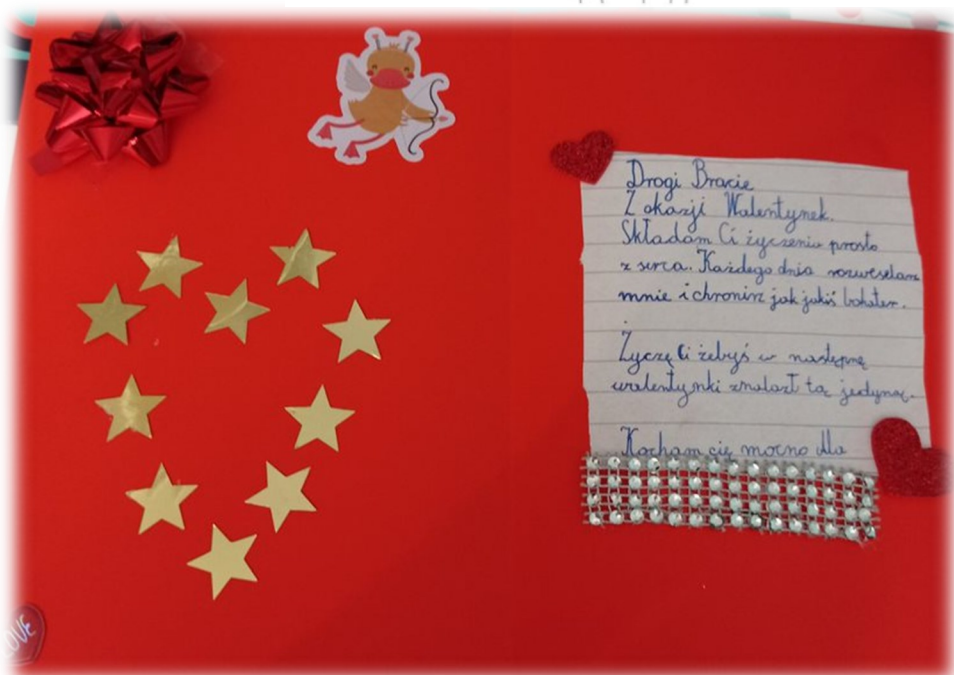 Drogi Bracie
Z okazji Walentynek.
Składam Ci życzenia prosto
z serca. Każdego dnia rozweselasz
mnie i chronisz jak jakiś bohater.
Życzę Ci żebyś w następne
walentynki znalazł tą jedyną.
Kocham cię mocno
LOVE